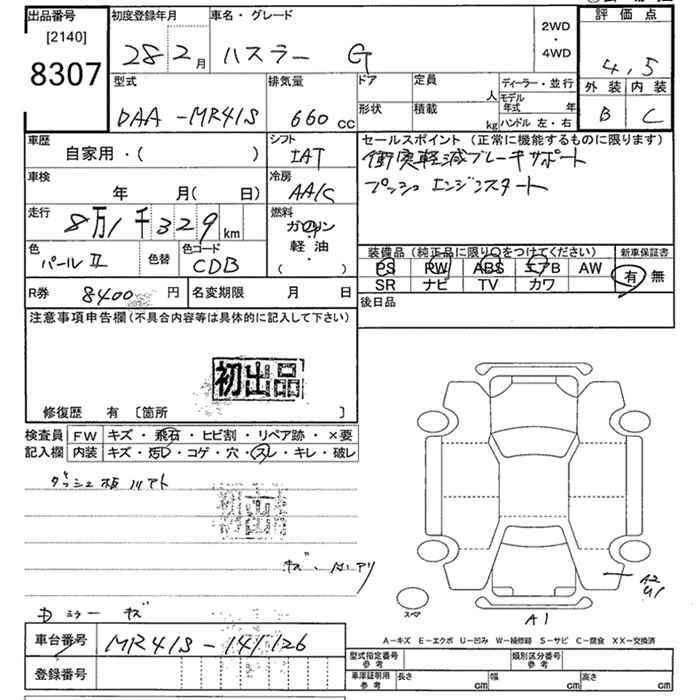 出品番号
[2140]
8307
初度登録年月
28 2 月
車名・グレード
ハスラー G
2WD
・
4WD
評価点
4,5
外装 内装
B C
型式
DAA-MR41S
排気量
660 cc
ドア 定員
人
形状 積載
kg
ディーラー・並行
モデル
年式 年
ハンドル 左・右
車歴
自家用・( )
シフト
IAT
セールスポイント(正常に機能するものに限ります)
衝突軽減ブレーキサポート
プッシュエンジンスタート
車検
年 月( 日)
冷房
AA/C
走行
8万1千329km
燃料
ガソリン
軽油・
( )
色
パールII
色替
色コード
CDB
装備品(純正品に限り○をつけてください)
PS PW ABS エアB AW
SR ナビ TV カワ
新車保証書
有 無
R券 8400 円
名変期限 月 日
後日品
注意事項申告欄(不具合内容等は具体的に記入して下さい)
初出品
修復歴 有 〔箇所 〕
検査員
記入欄
FW キズ・飛石・ヒビ割・リペア跡・×要
内装 キズ・汚レ・コゲ・穴・スレ・キレ・破レ
ダッシュ板
初出
キズ・
ミラー キズ
スペア
A2
U1
A1
A-キズ E-エクボ U-凹み W-補修跡 S-サビ C-腐食 XX-交換済
車台番号
MR41S-141126
登録番号
型式指定番号
参考
類別区分番号
参考
車庫証明用
参考
長さ cm 幅 cm 高さ cm